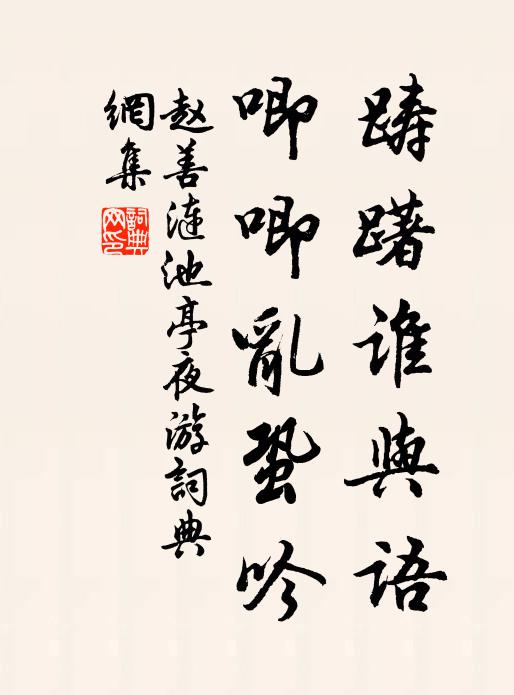 踌躇谁与语
唧唧亂蛩吟
赵善涟池亭夜游詞典
網集
詞典
网印